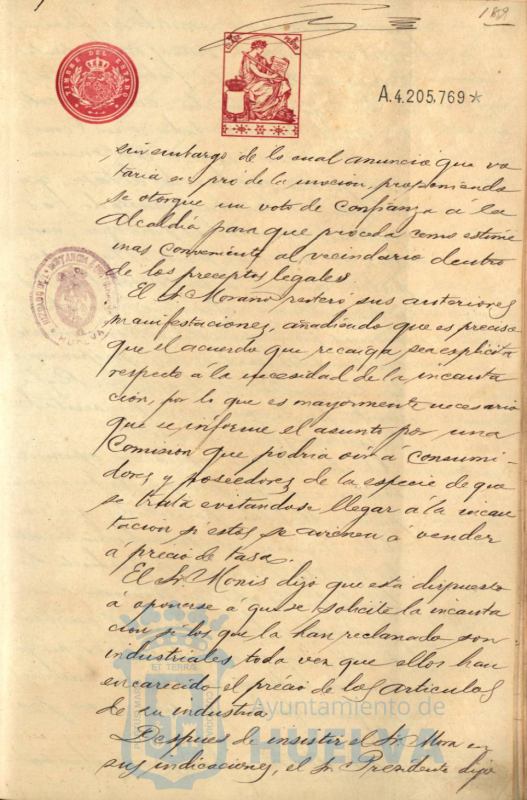 1859
TIMBRE DEL ESTADO
A.4.205.769*
sin embargo de lo cual anuncio que vo
taria en pró de la mocion, proponiendo
se otorgue un voto de confianza á la
Alcaldía para que proceda como estime
mas conveniente al vecindario dentro
de los preceptos legales
El Sr. Morano reiteró sus anteriores
manifestaciones, añadiendo que es preciso
que el acuerdo que recaiga sea explicito
respecto á la necesidad de la incauta
ción, por lo que es mayormente necesario
que se informe el asunto por una
Comision que podria oir a consumi
dores y poseedores de la especie de que
se trata evitandose llegar á la incau
tacion si estos se avienen á vender
á precio de tasa.
El Sr. Monis dijo que está dispuesto
á oponerse á que se solicite la incauta
cion si los que la han reclamado son
industriales, toda vez que ellos han
encarecido el précio de los articulos
de su industria
Despues de insistir el Sr. Mora en
sus indicaciones, el Sr. Presidente dijo
Ayuntamiento de
HUELVA